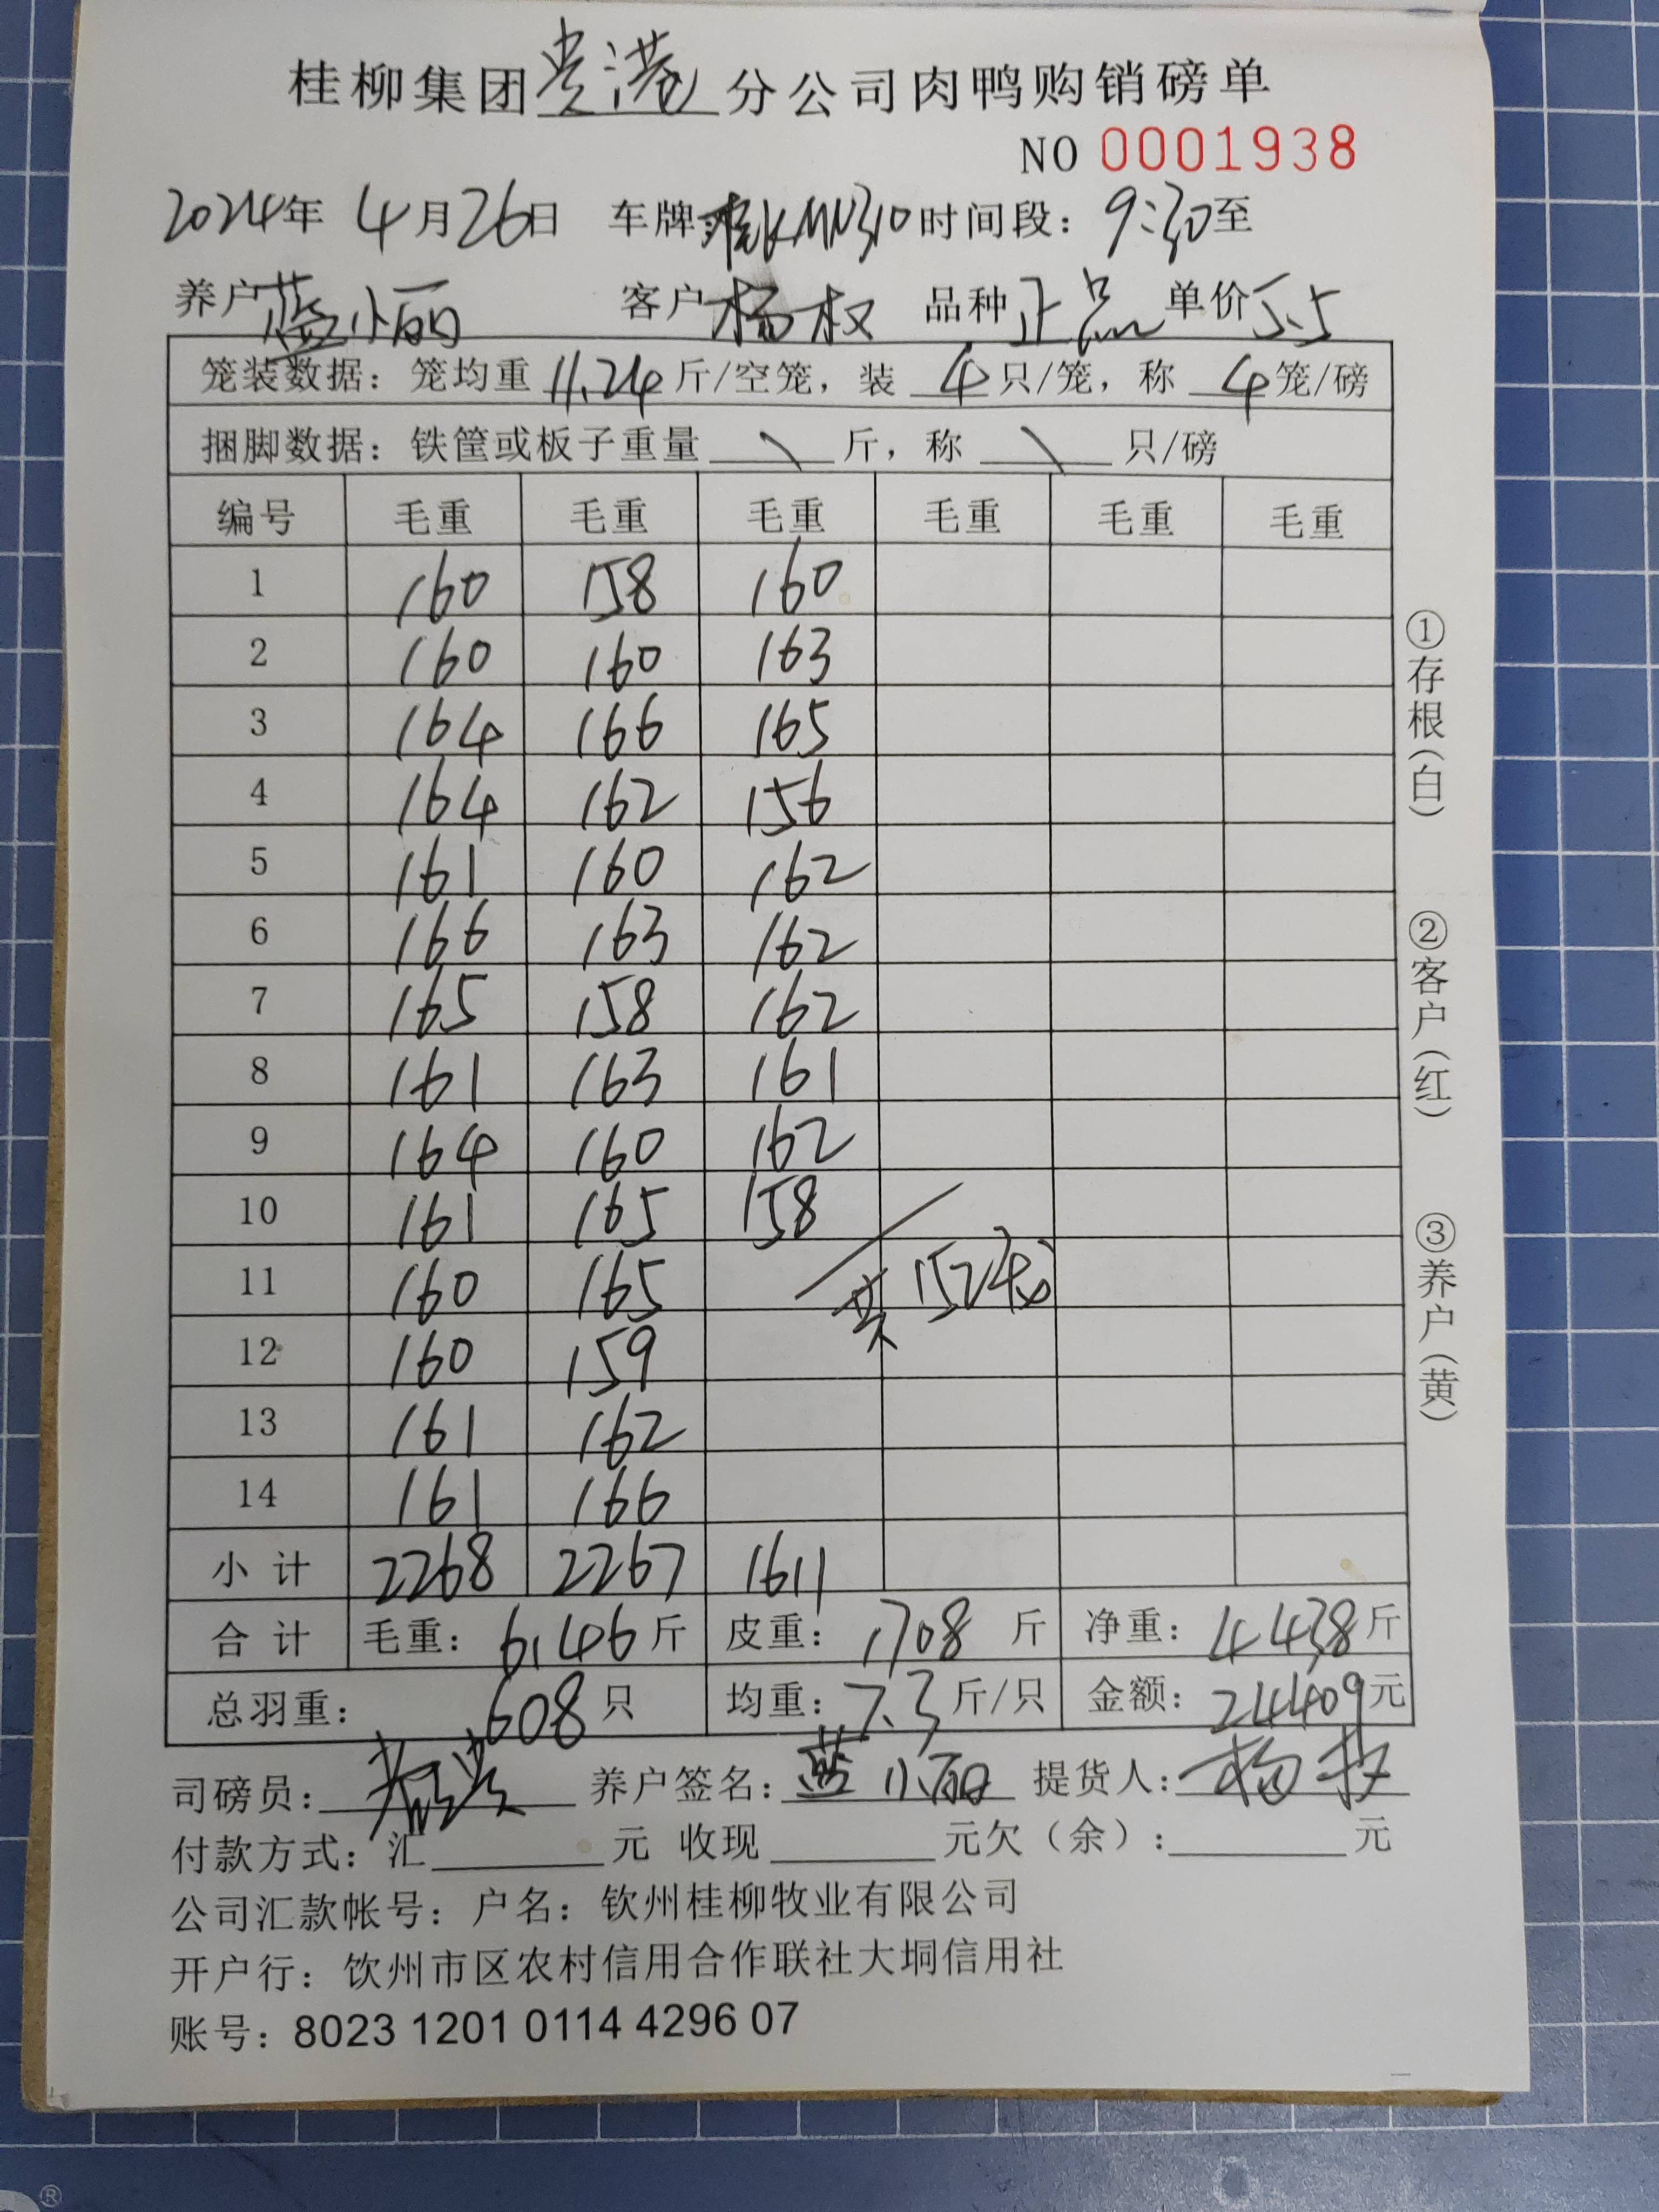 桂柳集团贵港分公司肉鸭购销磅单
NO 0001938
2024年 4月26日 车牌:桂KMN310 时间段: 9:30至
养户 蓝小丽 客户 杨权 品种 正品 单价 5.5
笼装数据: 笼均重 11.24 斤/空笼, 装 4 只/笼, 称 4 笼/磅
捆脚数据: 铁筐或板子重量 \ 斤, 称 \ 只/磅
编号 毛重 毛重 毛重 毛重 毛重 毛重
1 160 158 160
2 160 160 163
3 164 166 165
4 164 162 156
5 161 160 162
6 166 163 162
7 165 158 162
8 161 163 161
9 164 160 162
10 161 165 158
11 160 165 共 152笼
12 160 159
13 161 162
14 161 166
小计 2268 2267 1611
合计 毛重: 6146 斤 皮重: 1708 斤 净重: 4438 斤
总羽重: 608 只 均重: 7.3 斤/只 金额: 24409 元
司磅员: 养户签名: 蓝小丽 提货人: 杨权
付款方式: 汇 元 收现 元欠（余）: 元
公司汇款帐号: 户名: 钦州桂柳牧业有限公司
开户行: 饮州市区农村信用合作联社大垌信用社
账号: 8023 1201 0114 4296 07
①存根（白）
②客户（红）
③养户（黄）
®